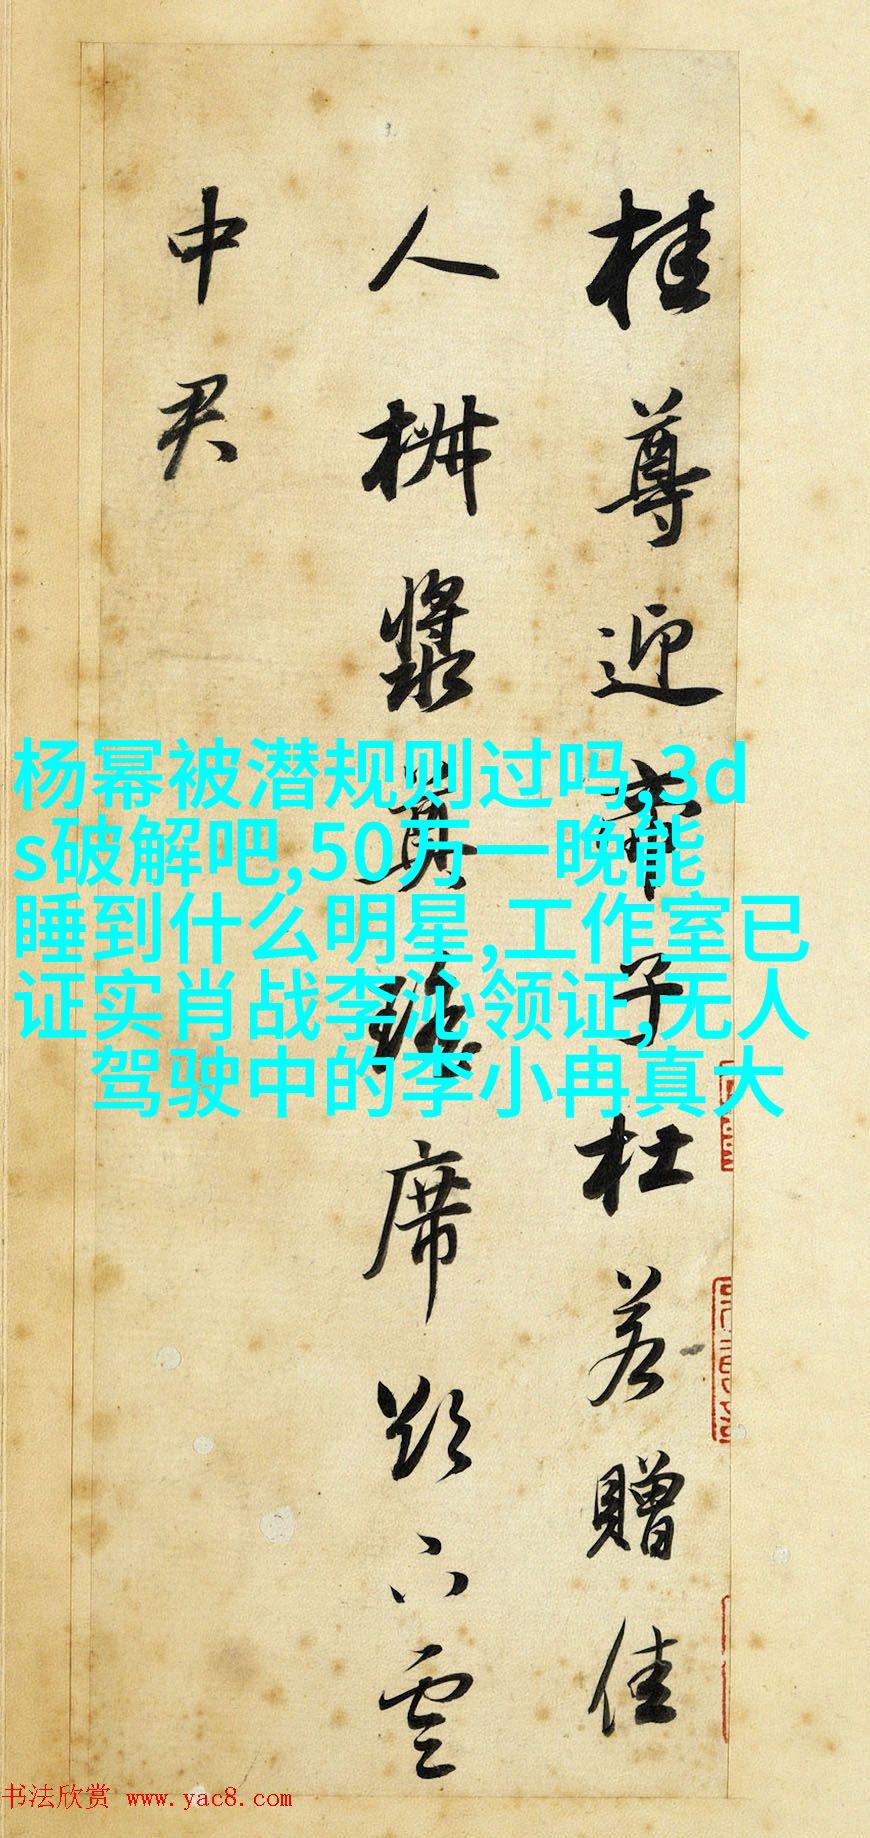 桂尊迎帝子杜若贈佳
人椒漿奠瑤席欲下雲
中君
杨幂被潜规则过吗,3d
s破解吧,50万一晚能
睡到什么明星,工作室已
证实肖战李沁领证,无人
驾驶中的李小冉真大
书法欣赏 www.yac8.com